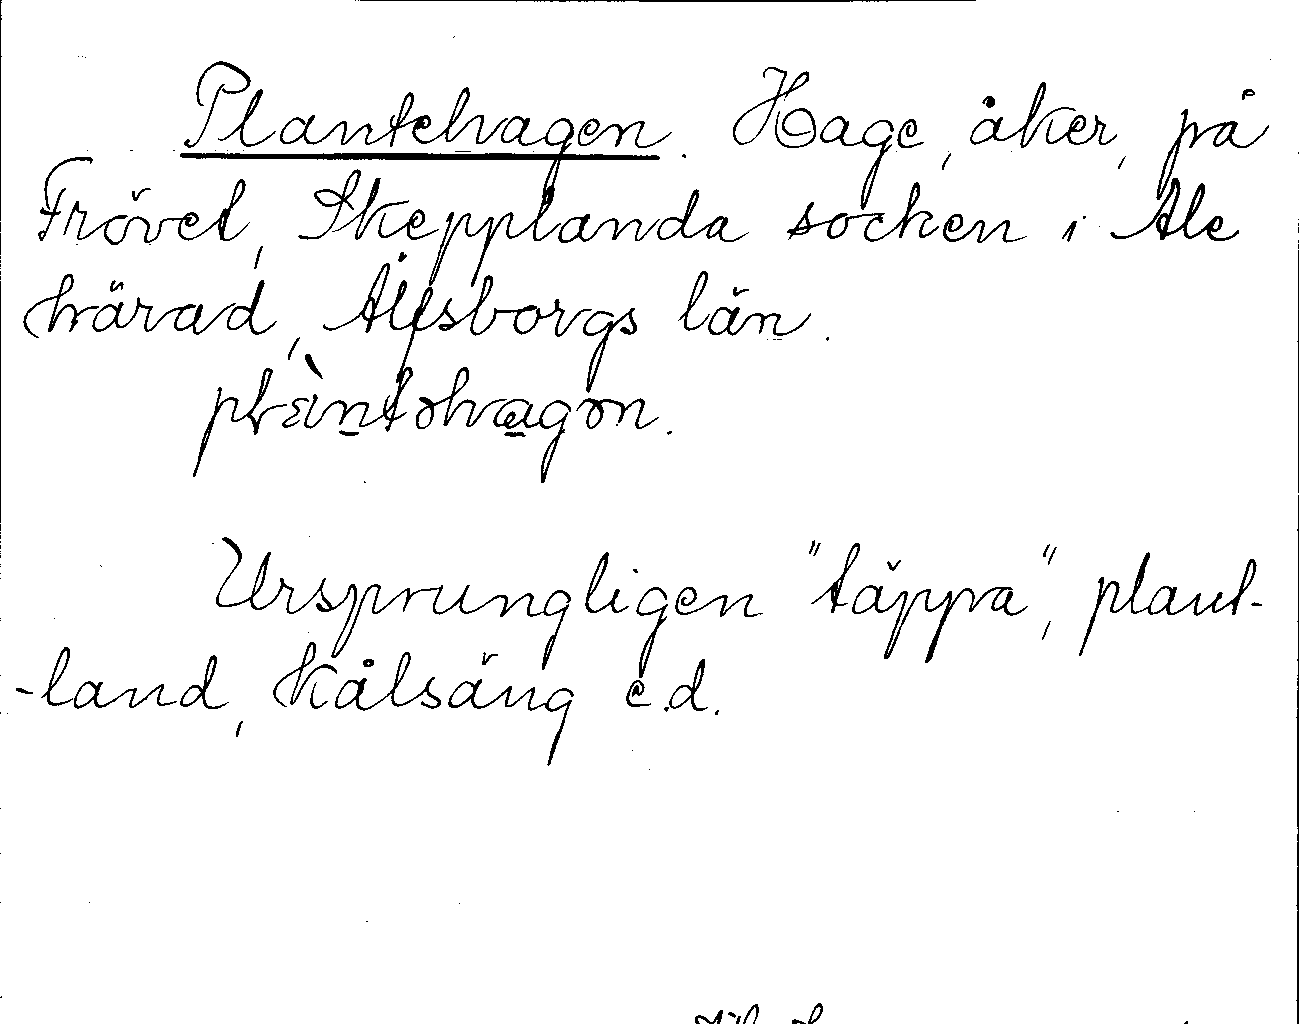 Plantehagen. Hage, åker, på
Frövet, Skepplanda socken i Ale
härad, Älfsborgs län.
Ursprungligen "täppa", plant-
-land, kålsäng e.d.